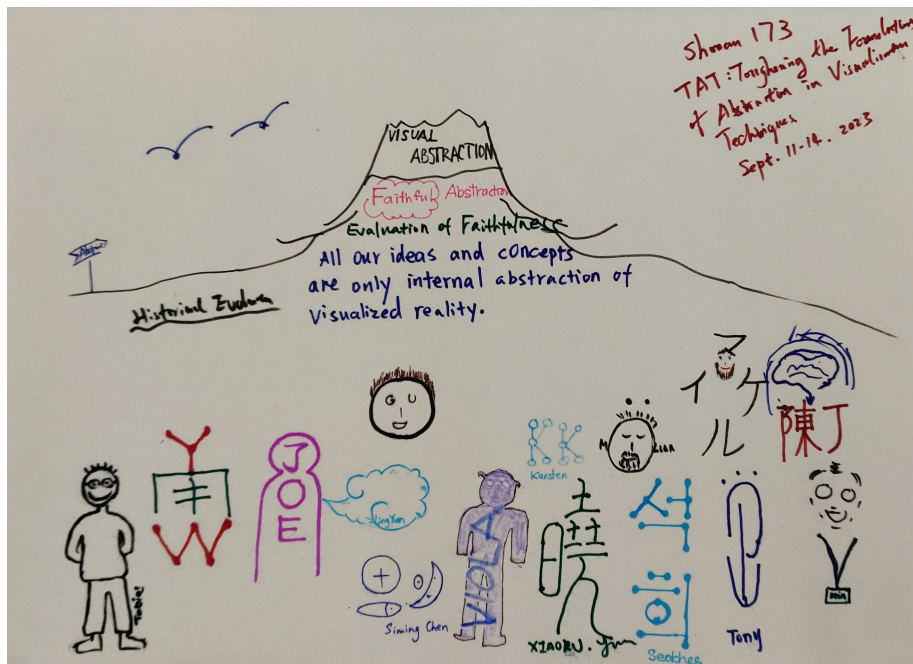 Shonan 173
TAT: Toughening the Foundations
of Abstraction in Visualization
Techniques
Sept. 11-14. 2023
VISUAL
ABSTRACTION
Faithful Abstraction
Evaluation of Faithfulness
All our ideas and concepts
are only internal abstraction of
visualized reality.
Historical
マイケル
陳丁
JOE
LingYun
Karsten
Tobias
VIOLA
Siming Chen
XIAORU
Tony
서